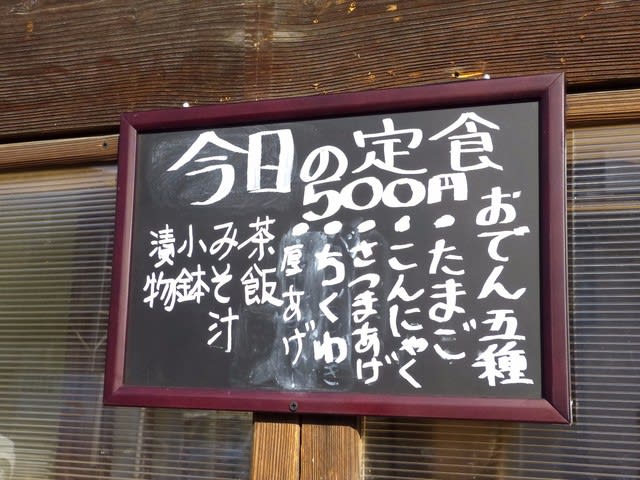 今日の定食
500円
おでん五種
・たまご
・こんにゃく
・さつまあげ
・ちくわ
・厚あげ
茶飯
みそ汁
小鉢
漬物